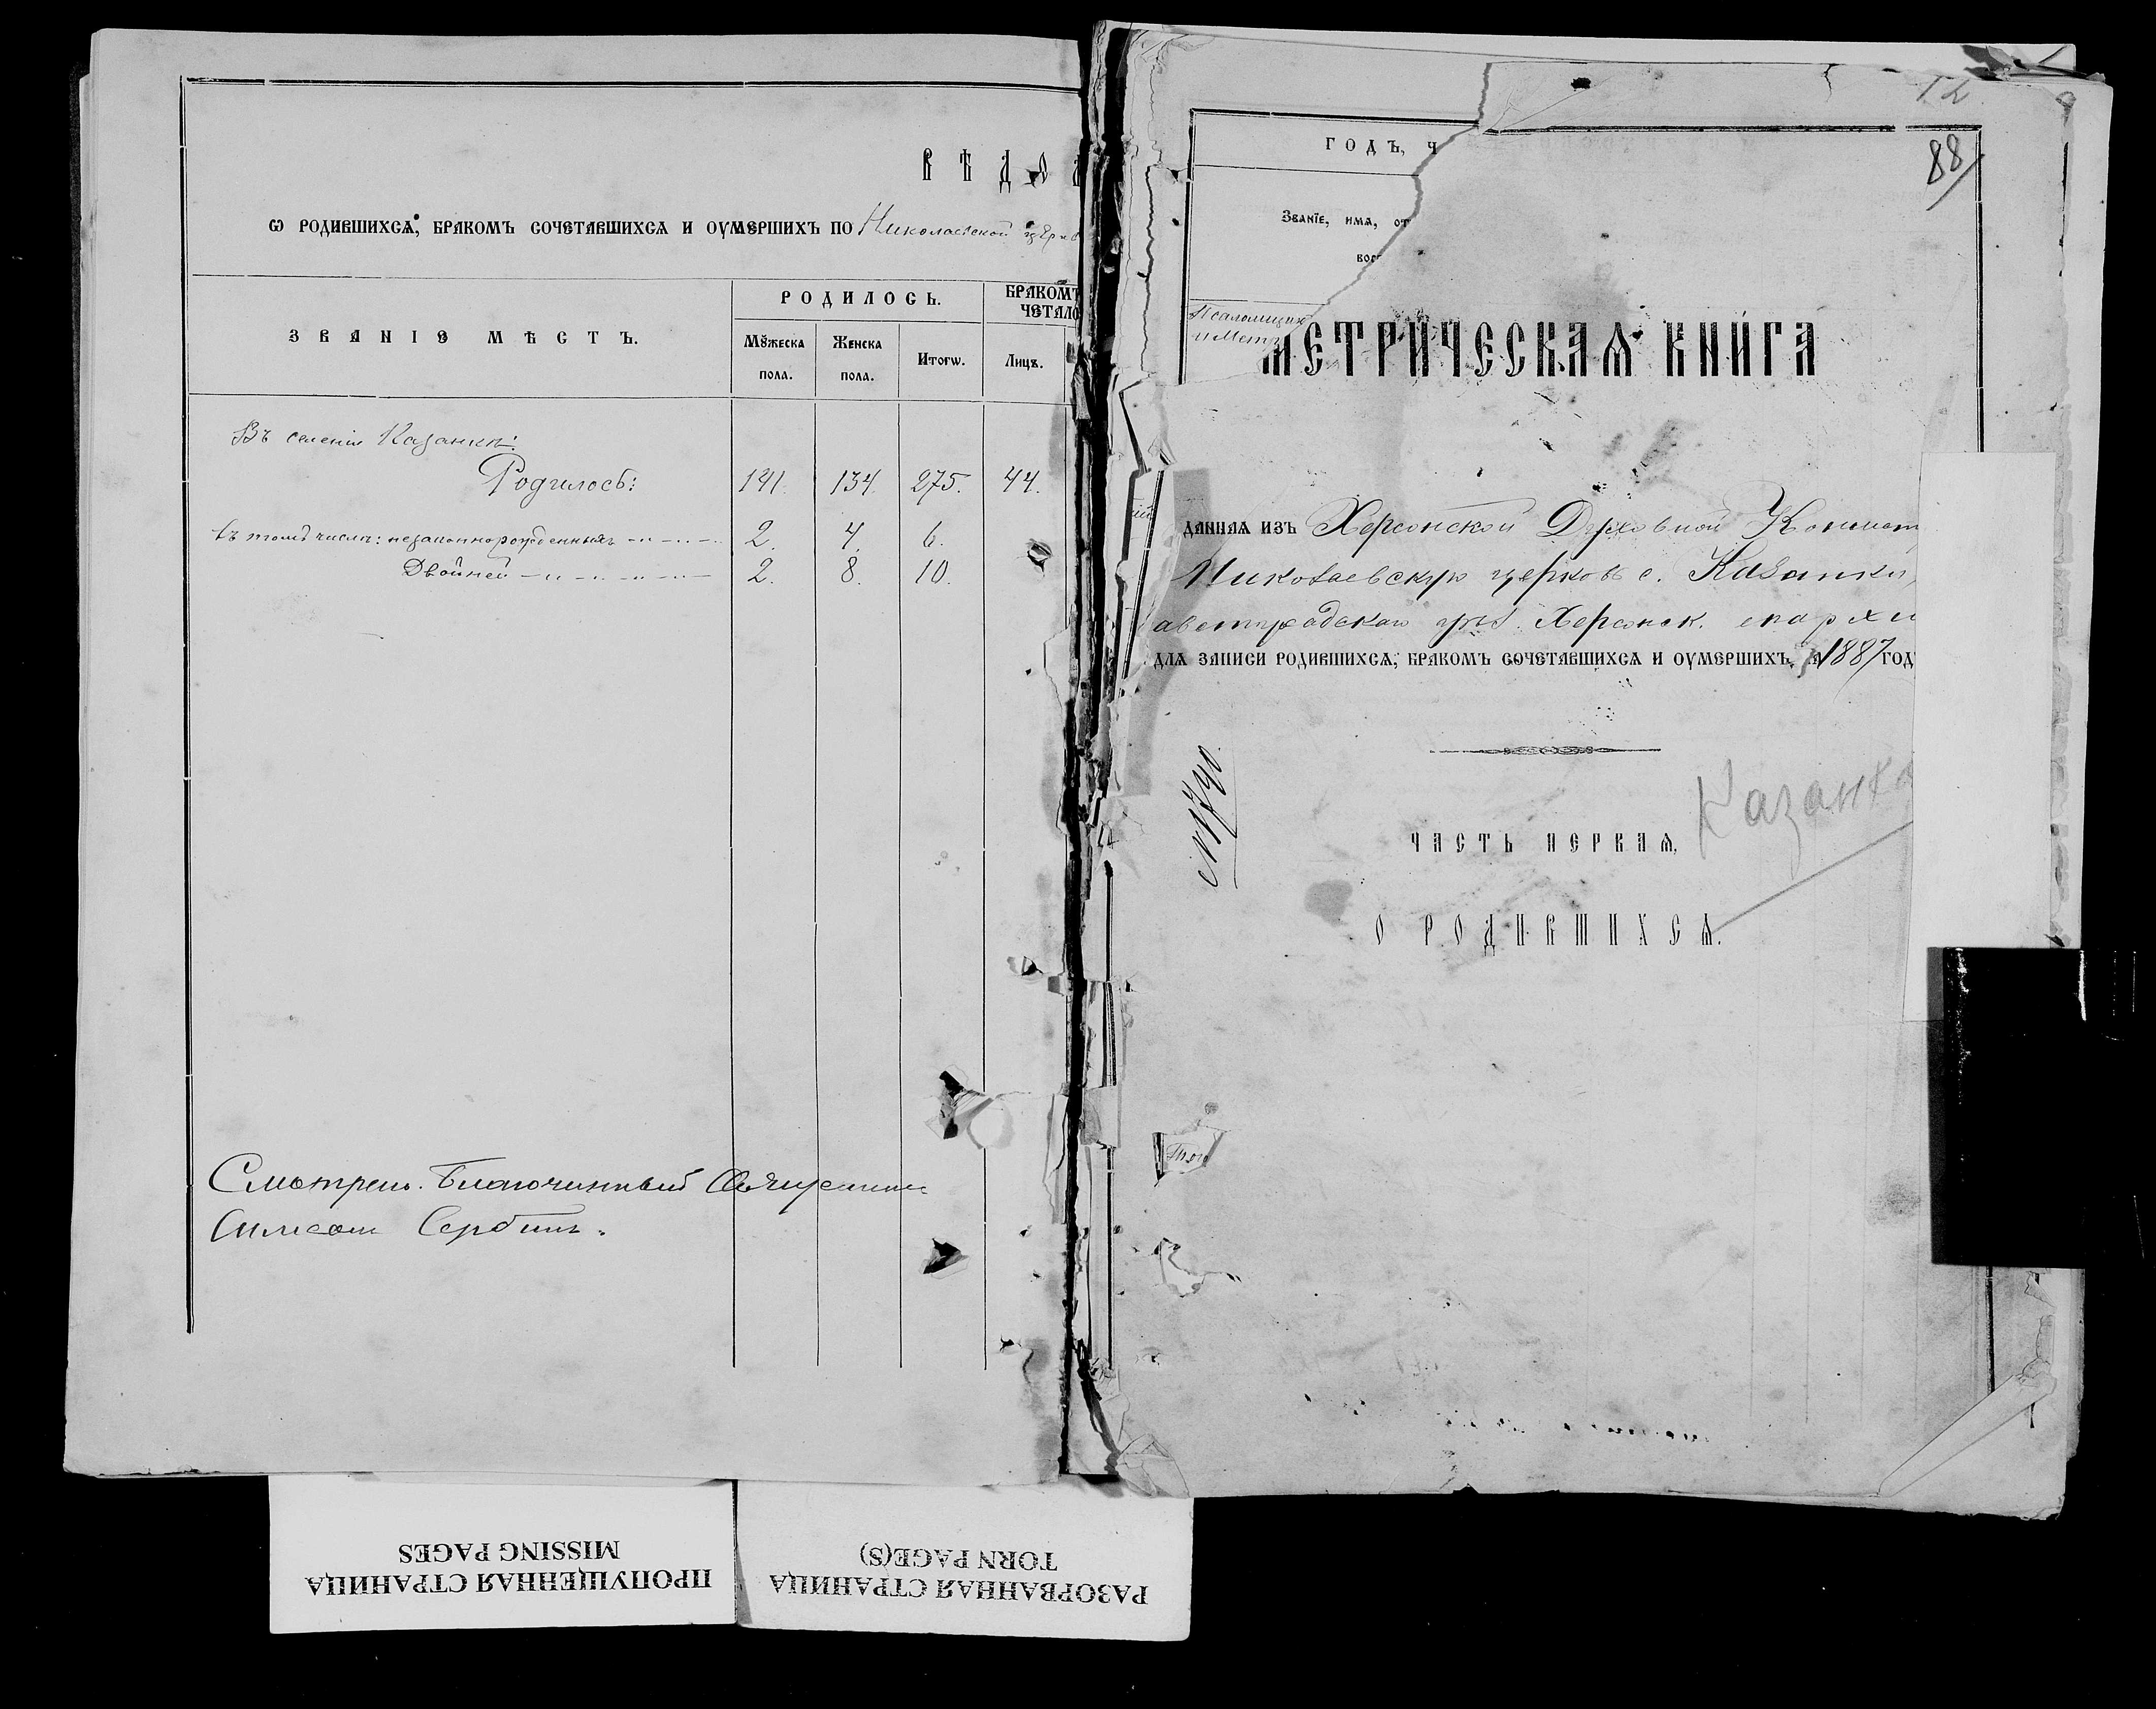 ВѢДО
Ѡ РОДИВШИХСѦ, БРАКОМЪ СОЧЕТАВШИХСѦ И ОУМЕРШИХЪ ПО Николаевской церкв
ЗВАНІЕ МѢСТЪ.
РОДИЛОСЬ.
БРАКОМЪ
ЧЕТАЛО
Мꙋжеска пола.
Женска пола.
Итогѡ.
Лицъ.
Въ селеніи Казанкѣ:
Родилось: 141. 134. 275. 44.
въ томъ числѣ: незаконнорожденныхъ 2. 4. 6.
Двойней 2. 8. 10.
Смотрелъ. Благочинный Священникъ
Симеонъ Сербинъ.
12
88
ГОДЪ, Ч
Званїе, имѧ, от
Псаломщикъ
и Мет
МЕТРИЧЕСКАѦ КНИГА
ДАННАѦ ИЗЪ Херсонской Духовной Консист
Николаевскую церковь с. Казанки,
аветградскаго уѣз. Херсонск. епархи
ДЛѦ ЗАПИСИ РОДИВШИХСѦ, БРАКОМЪ СОЧЕТАВШИХСѦ И ОУМЕРШИХЪ, НА 1887 ГОД
Казанка
ЧАСТЬ ПЕРВАѦ,
О РОДИВШИХСѦ.
ПРОПУЩЕННАЯ СТРАНИЦА
MISSING PAGES
РАЗОРВАННАЯ СТРАНИЦА
TORN PAGE(S)